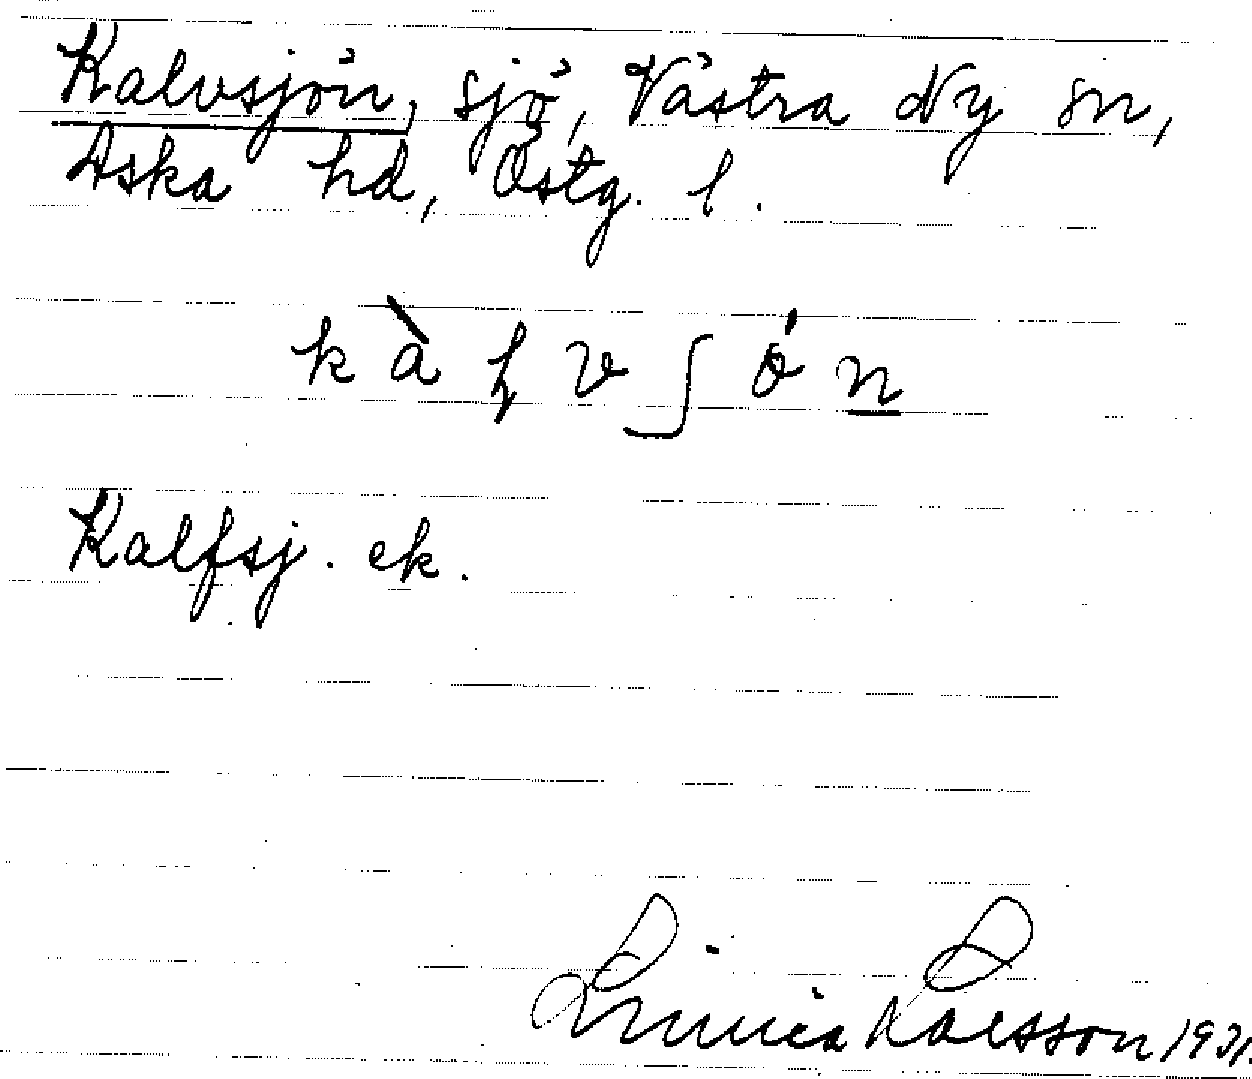 Kalvsjön, sjö, Västra Ny sn,
Aska hd, Östg. l.
Kalfsj. ek.
Linnéa Larsson 1931.